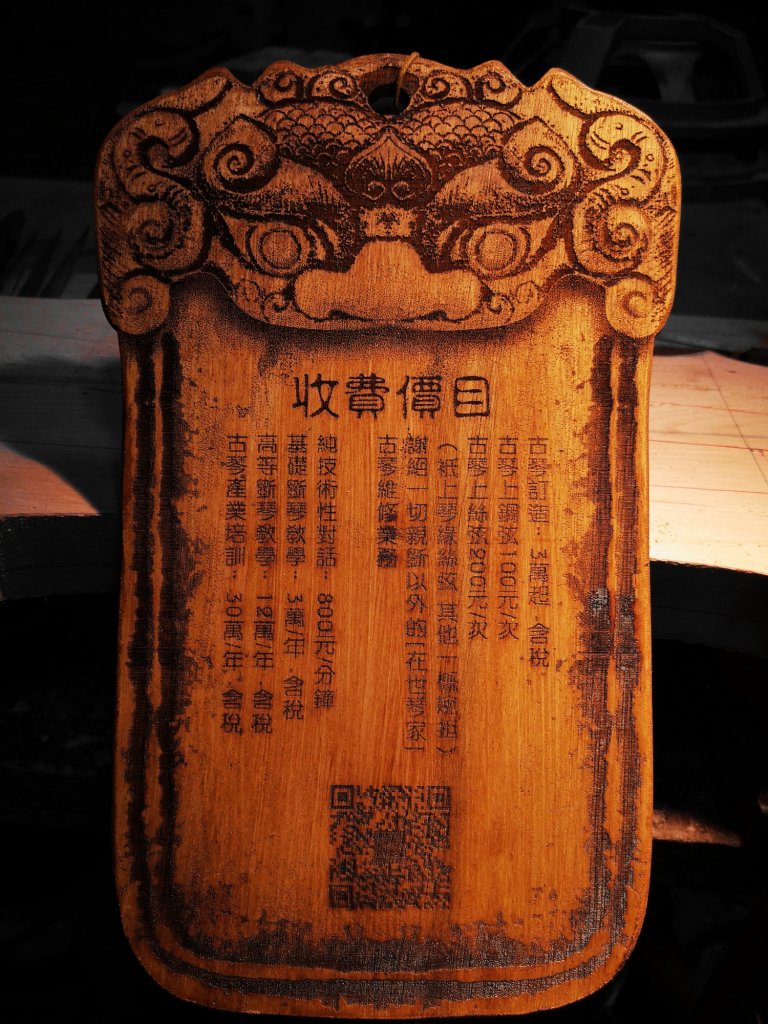 收費價目
古琴訂造：3萬起·含稅
古琴上鋼弦100元/次
古琴上絲弦200元/次
（祇上琴緣絲弦 其他一概婉拒）
謝絕一切親斲以外的[在世琴家]
古琴維修業務
純技術性對話：800元/分鐘
基礎斲琴教學：3萬/年·含稅
高等斲琴教學：12萬/年·含稅
古琴產業培訓：30萬/年·含稅